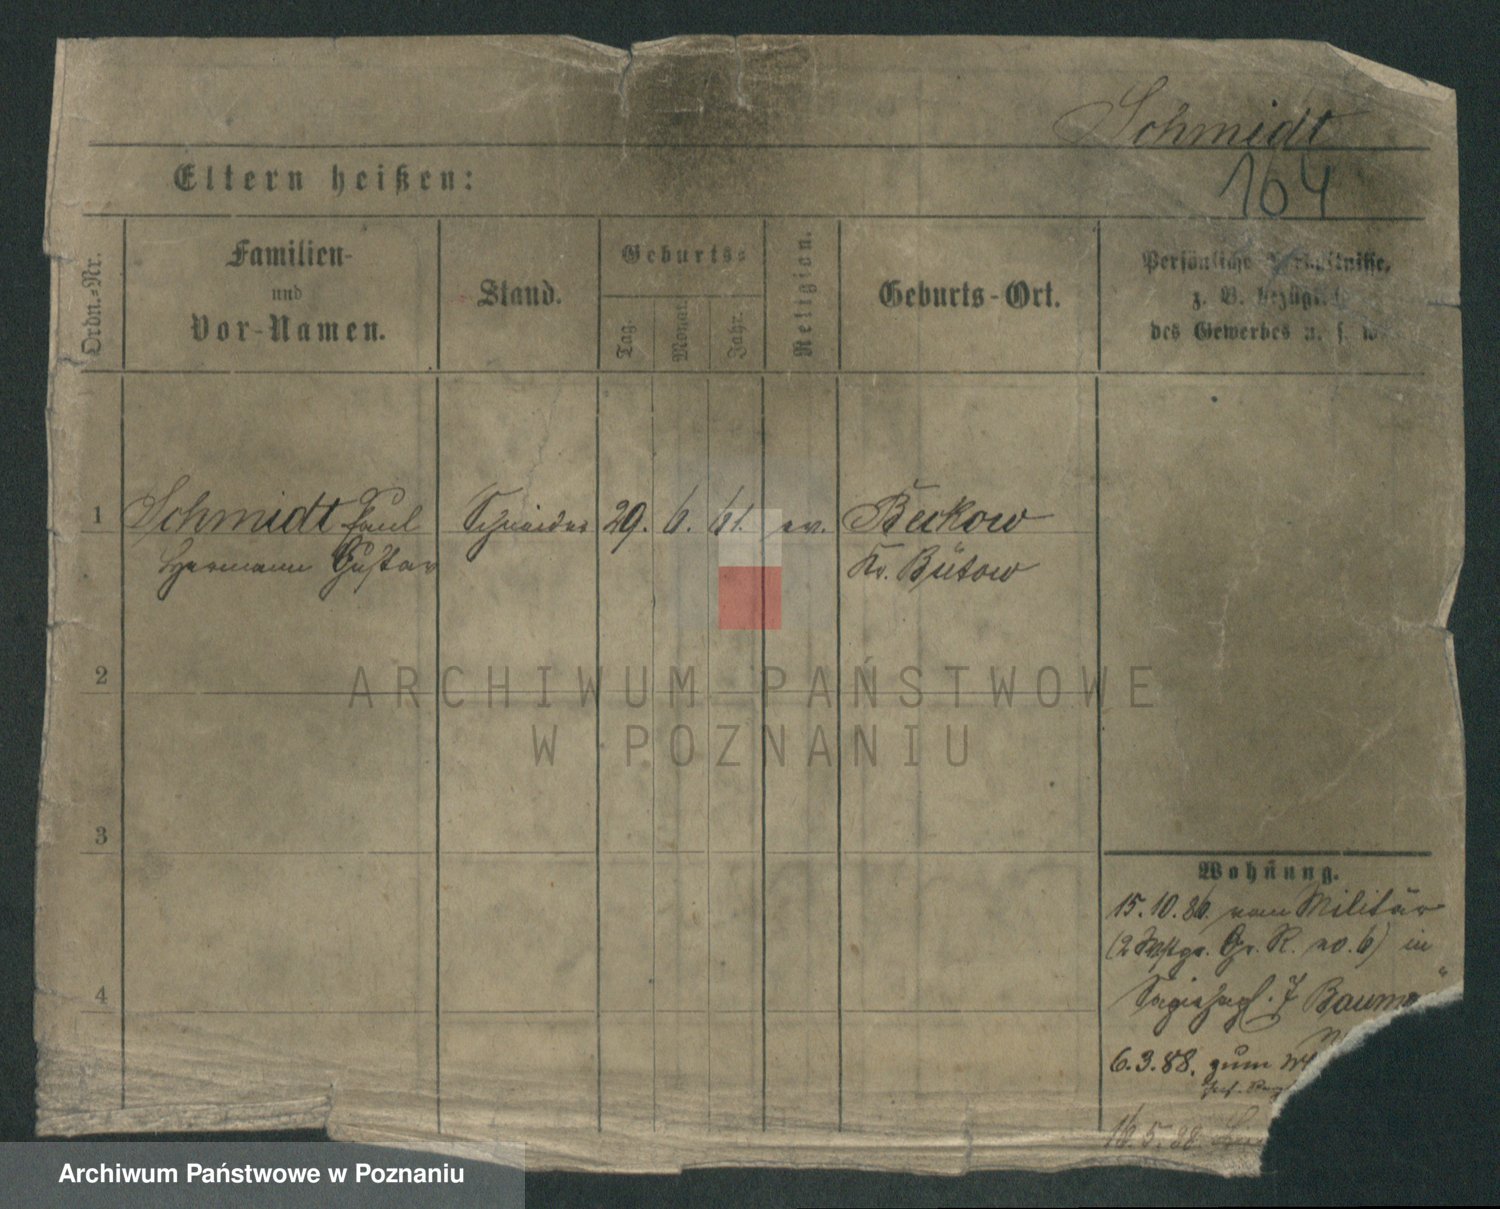 Schmidt
164
Eltern heißen:
Ordn.-Nr.
Familien-
und
Vor-Namen.
Stand.
Geburts-
Tag.
Monat.
Jahr.
Religion.
Geburts-Ort.
Persönliche Verhältnisse,
z. B. bezüglich
des Gewerbes u. s. w.
1 Schmidt Paul Schneider 29. 6. 61. ev. Beckow
Hermann Gustav Kr. Bütow
2
ARCHIWUM PAŃSTWOWE
W POZNANIU
3
Wohnung.
15.10.86. vom Militär
(2 Wstpr. Gr. R. no. 6) in
4
Baum
6.3.88. zum
16.5.88.
Archiwum Państwowe w Poznaniu